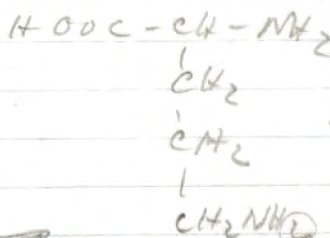 HOOC - CH - NH2
CH2
CH2
CH2NH2